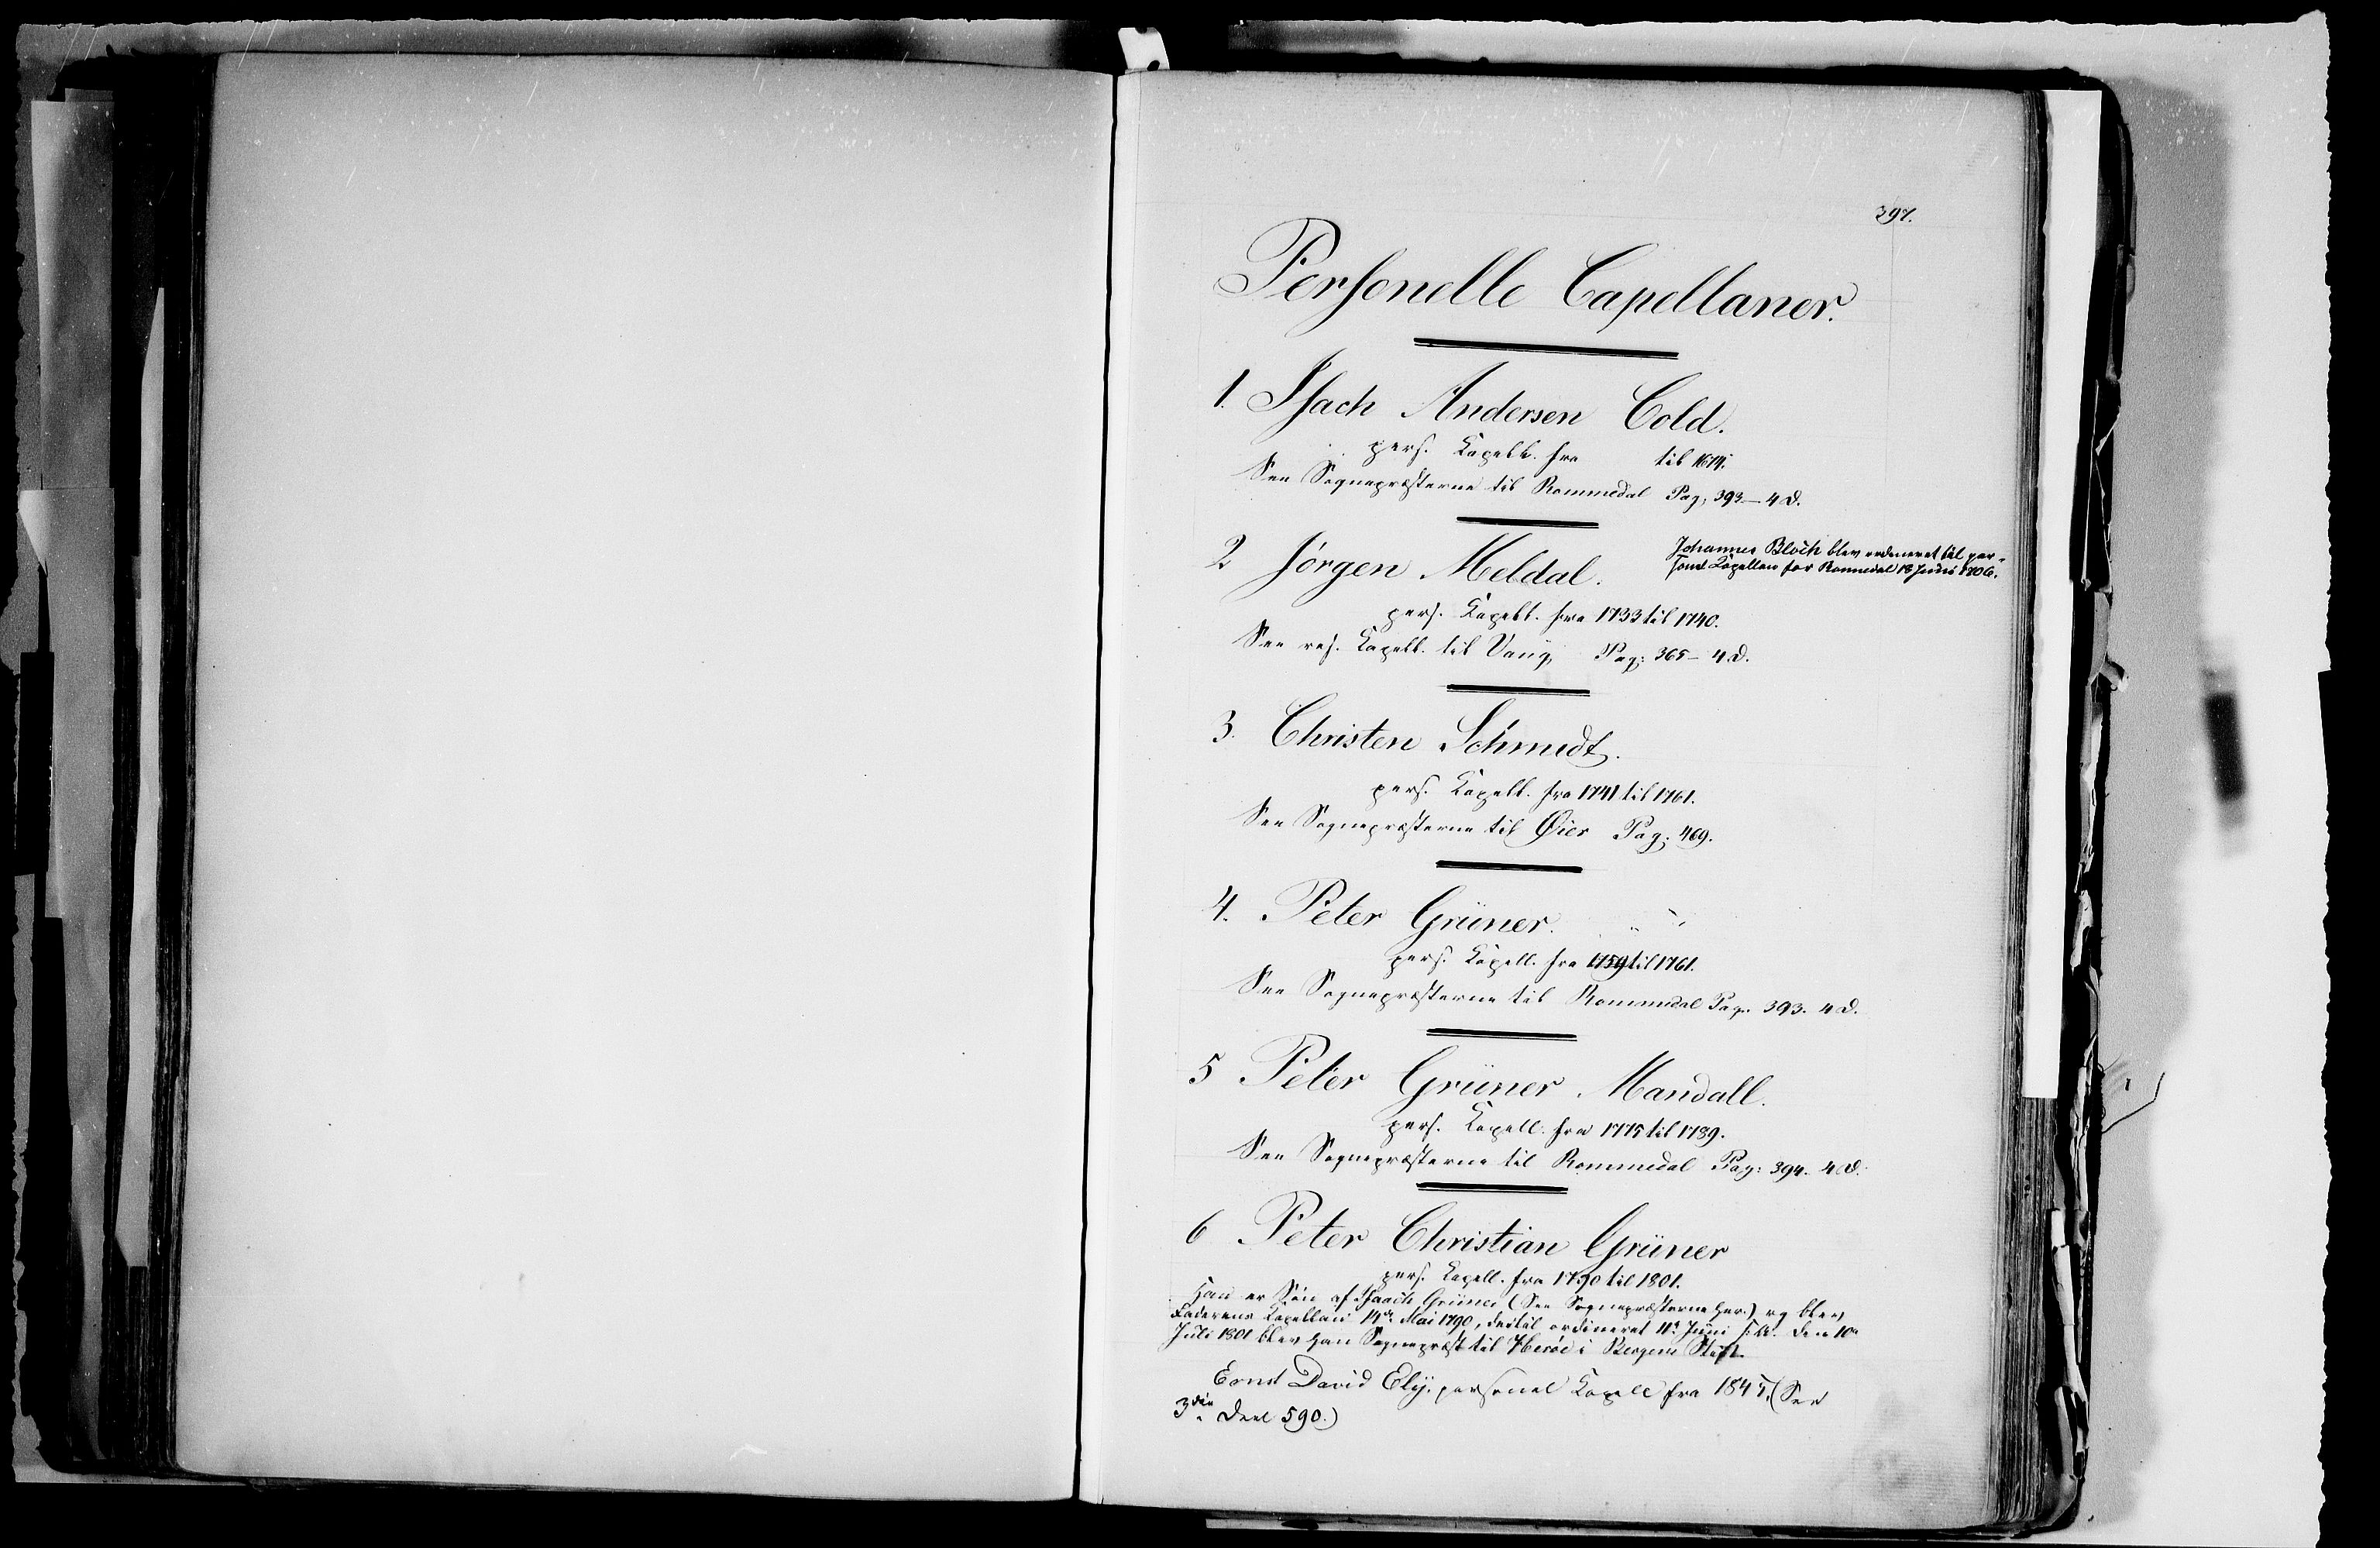 397.
Personelle Capellaner.
1. Isach Andersen Cold.
pers. Kapell. fra til 1674.
See Sognepræsterne til Rommedal Pag; 393-4 d.
2 Jörgen Meldal.
Johannes Bloch blev ordineret til per-
sonel Kapellan for Romedal 18 Juni 1706.
pers. Kapell. fra 1733 til 1740.
See res. Kapell. til Vang, Pag: 365-4 d.
3. Christen Schmidt.
pers. Kapell. fra 1741 til 1761.
See Sognepræsterne til Øier Pag; 469.
4. Peter Grüner.
pers. Kapell. fra 1759 til 1761.
See Sognepræsterne til Rommedal Pag. 393. 4 d.
5 Peter Grüner Mandall.
pers. Kapell. fra 1775 til 1789.
See Sognepræsterne til Rommedal Pag: 394. 4 d.
6 Peter Christian Grüner
pers. Kapell. fra 1790 til 1801.
Han er Søn af Isaach Grüner (See Sognepræsterne her.) og blev
Faderens Kapellan 14de Mai 1790, dertil ordineret 11t Juni s. A. den 10de
Juli 1801 blev han Sognepræst til Herøe i Bergens Stift.
Ernst David Ely, personel Kapell fra 1845. (See
3die Deel 590.)